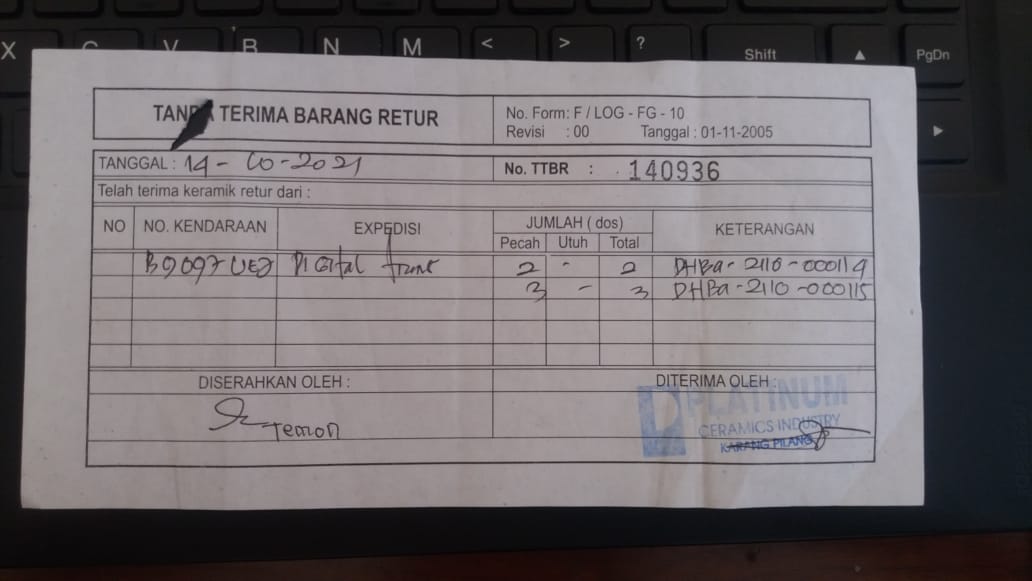 X C V B N M < > ? Shift ▲ PgDn
▶
TANDA TERIMA BARANG RETUR
No. Form: F / LOG - FG - 10
Revisi : 00 Tanggal : 01-11-2005
TANGGAL : 14 - 10 - 2021
No. TTBR : 140936
Telah terima keramik retur dari :
NO NO. KENDARAAN EXPEDISI JUMLAH ( dos) KETERANGAN
Pecah Utuh Total
B 9097 UEJ Digital 2 - 2 DHBa - 2110 - 000114
3 - 3 DHBa - 2110 - 000115
DISERAHKAN OLEH : DITERIMA OLEH :
Temon
PLATINUM
CERAMICS INDUSTRY
KARANG PILANG